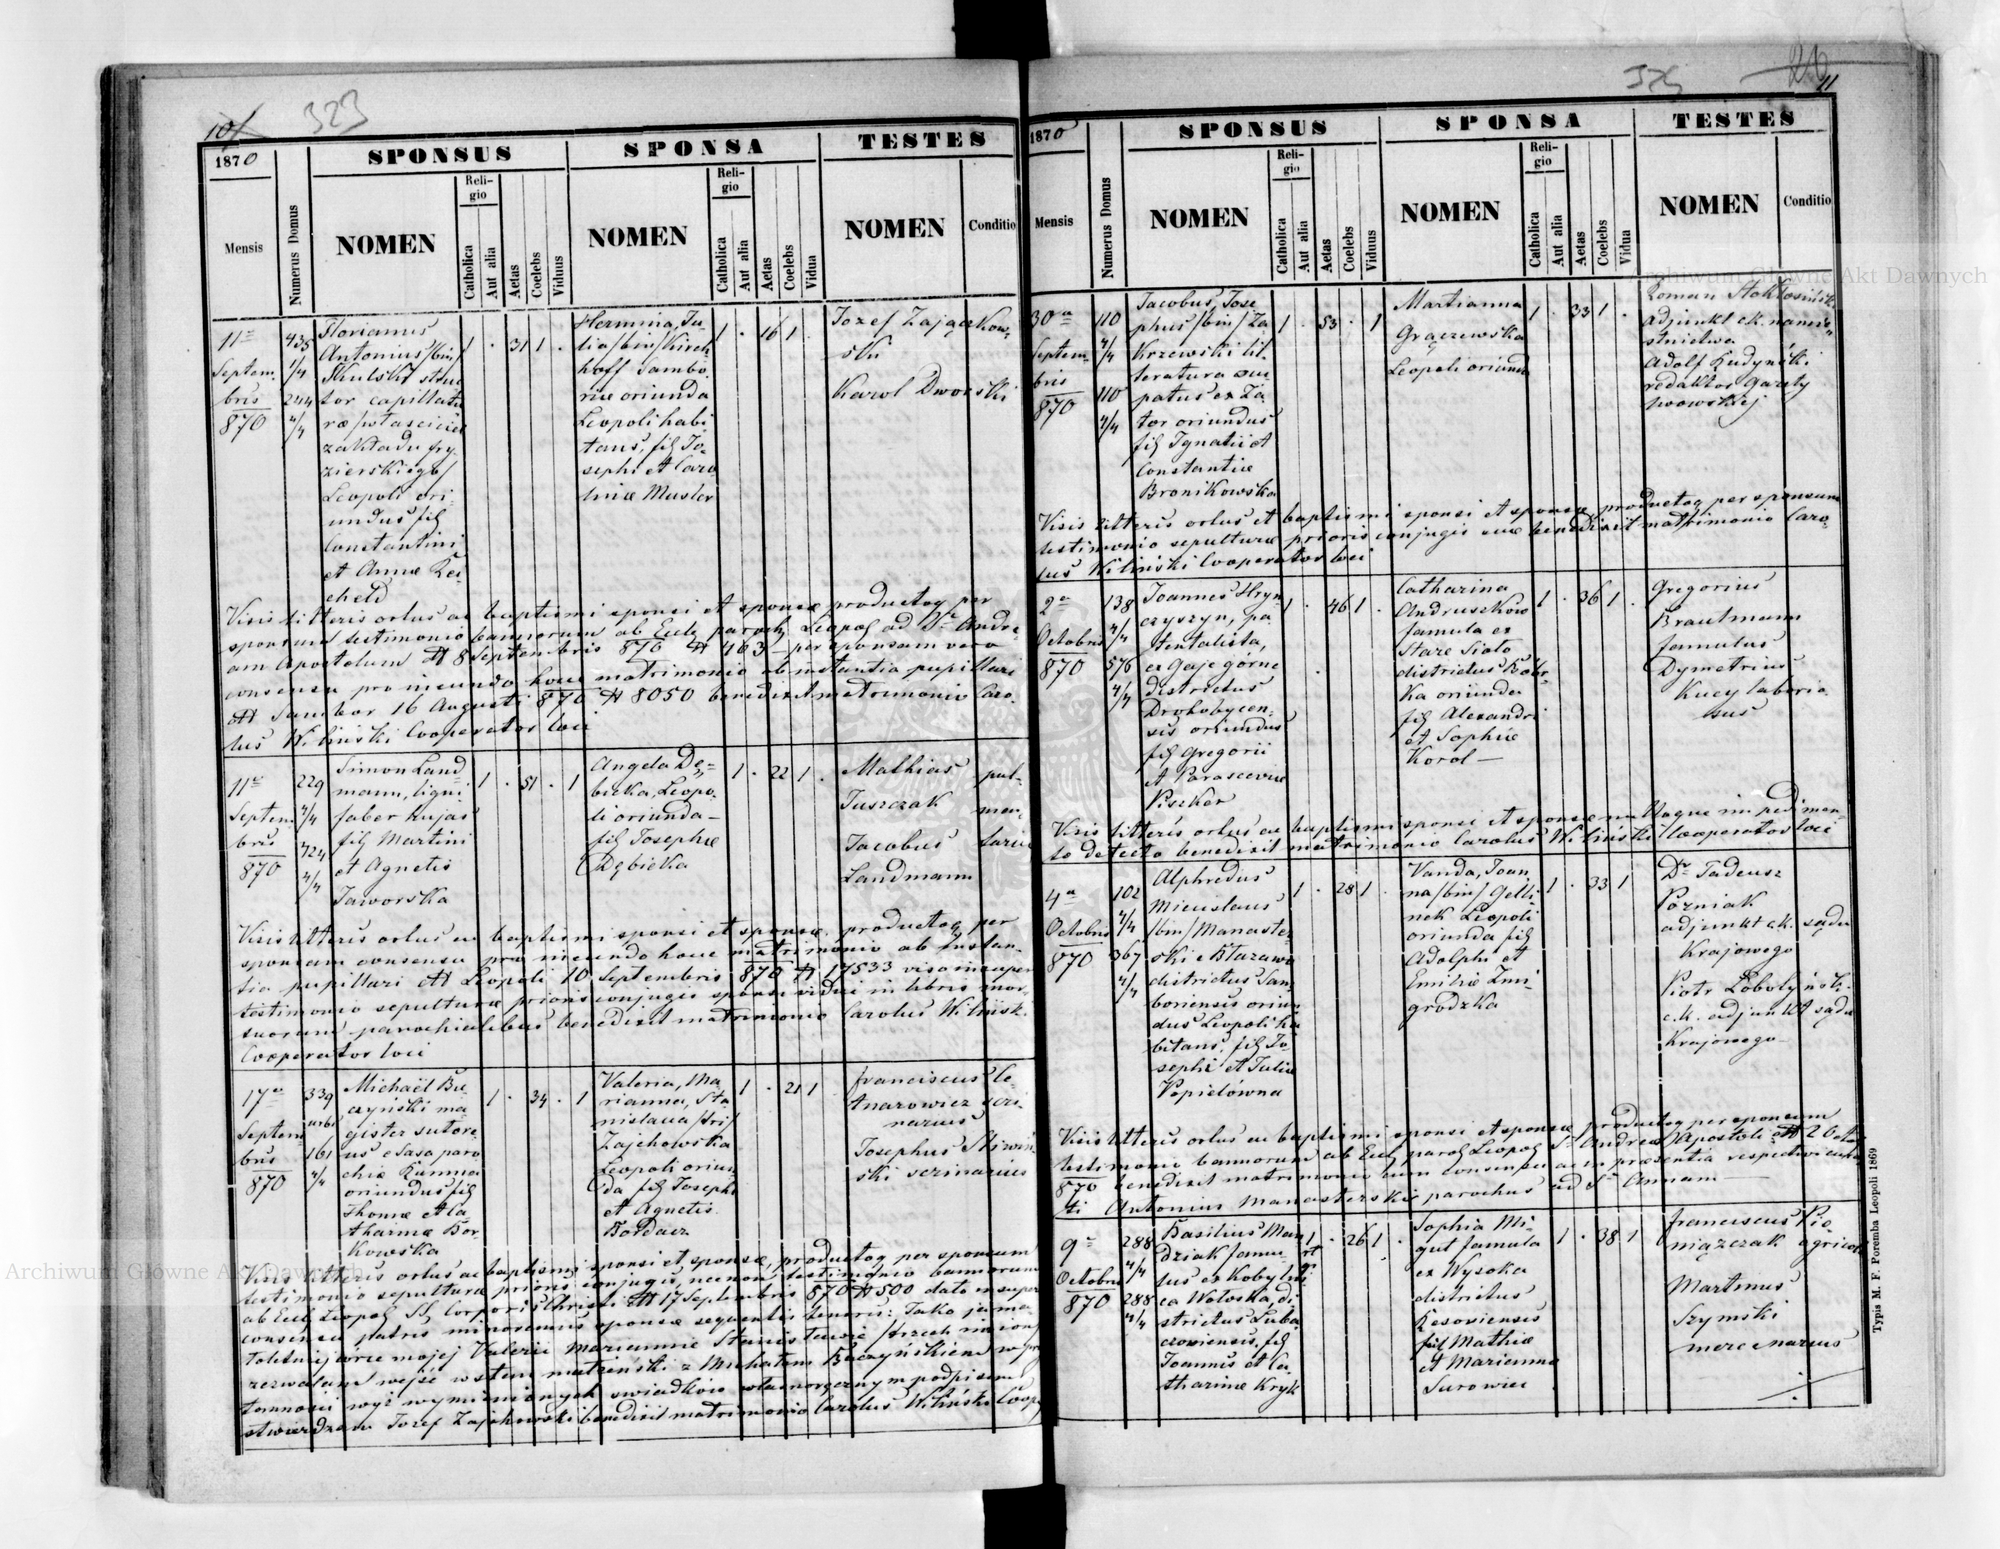 10
323
1870
SPONSUS
SPONSA
TESTES
Mensis
Numerus Domus
NOMEN
Religio
Catholica
Aut alia
Aetas
Coelebs
Viduus
NOMEN
Religio
Catholica
Aut alia
Aetas
Coelebs
Vidua
NOMEN
Conditio
11
Septem
bris
870
435
1/4
244
4/4
Florianus
Antonius /bin/
Skulski struc
tor capillatu
ræ /właściciel
zakładu fry
zierskiego/
Leopoli ori
undus fil
Constantini
et Annæ Rei
cheld
1 . 31 1 .
Hermina, Ju
lia /bin/ Kirch
hoff Sambo
riæ oriunda
Leopoli habi
tans, fil Jo
sephi et Caro
linæ Musler
1 . 16 1 .
Jozef Zajączkow
ski
Karol Dworski
Visis litteris ortus ac baptismi sponsi et sponsæ productoq per
sponsum testimonio bannorum ab Eccl paroch Leopol ad St Andre
am Apostolum 8 Septembris 870 N 403 – per sponsam vero
consensu pro ineundo hocce matrimonio ab instantia pupillari
Sambor 16 Augusti 870 N 8050 benedixit matrimonio Caro
lus Wiliński Cooperator loci
11
Septem
bris
870
229
4/4
724
4/4
Simon Land
mann, ligni
faber hujas
fil Martini
et Agnetis
Jaworska
1 . 51 . 1
Angela Dę
bicka, Leopo
li oriunda –
fil Josephæ
Dębicka
1 . 22 1 .
Mathias
Tuszczak
Jacobus
Landmann
pal
men
tarii
Visis litteris ortus ac baptismi sponsi et sponsæ, productoq per
sponsam consensu pro ineundo hocce matrimonio ab Instan
tia pupillari Leopoli 10 Septembris 870 N 17533 viso insuper
testimonio sepulturæ prioris conjugis sponsi vidui in libris mor
tuorum parochialibus benedixit matrimonio Carolus Wilińsk
Cooperator loci
17
Septem
bris
870
339
urbi
161
4/4
Michaël Bu
czyński ma
gister sutore
us e Sasa paro
chiæ Kamna
oriundus fil
Thomæ et Ca
tharinæ Bor
kowska
1 . 34 . 1
Valeria, Ma
rianna, Sta
nislaua /tri/
Zajchowska
Leopoli oriun
da fil Josephi
et Agnetis
Bordacz
1 . 21 1
franciscus Ce
tnarowicz scri
narius
Josephus Sliwin
ski scrinarius
Visis litteris ortus ac baptismi sponsi et sponsæ, productoq per sponsum
testimonio sepulturæ prioris conjugis, necnon testimonio bannorum
ab Eccl Leopol SS Corporis Christi 17 Septembris 870 N 500 dato insuper
consensu patris minorennis sponsæ sequentis tenoris: Jako juma
toletniej córce mojej Valerii Mariannie Stanisławie /trzech imion/
zezwalam wejść w stan małżeński z Michałem Buczyńskiem w przy
tomności wyż wymienionych świadków własnoręcznym podpisem
stwierdzam Jozef Zajchowski benedixit matrimonio Carolus Wiliński Coop
11
1870
SPONSUS
SPONSA
TESTES
Mensis
Numerus Domus
NOMEN
Religio
Catholica
Aut alia
Aetas
Coelebs
Viduus
NOMEN
Religio
Catholica
Aut alia
Aetas
Coelebs
Vidua
NOMEN
Conditio
30
Septem
bris
870
110
4/4
110
4/4
Jacobus, Jose
phus /bin/ Za
krzewski lit
teratura occu
patus ex Za
tor oriundus
fil Ignatii et
Constantiæ
Bronikowska
1 . 53 . 1
Martianna
Grączewska
Leopoli oriunda
1 . 33 1 .
Roman Stokłosiński
adjunkt c.k. namie
stnictwa
Adolf Rudyński
redaktor Gazety
lwowskiej
Visis litteris ortus et baptismi sponsi et sponsæ, productoq per sponsum
testimonio sepulturæ prioris conjugis suæ benedixit matrimonio Caro
lus Wiliński Cooperator loci
2
Octobris
870
138
4/4
576
4/4
Joannes Hryn
czyszyn, pa
tentalista,
ex Gaje górne
districtus
Drohobycen
sis oriundus
fil Gregorii
et Parasceviæ
Piszker
1 . 46 1 .
Catharina
Andruszków
famula ex
Stare Sioło
districtus Bóbr
ka oriunda
fil Alexandri
et Sophiæ
Korol –
1 . 36 1 .
Gregorius
Brautmann
famulus
Dymetrius
Kucy laborio
sus
Visis litteris ortus ac baptismi sponsi et sponsæ nulloque impedimen
to detecto benedixit matrimonio Carolus Wiliński Cooperator loci
4
Octobris
870
102
4/4
367
4/4
Alphredus
Mieceslaus
/bin/ Manaster
ski e Stazawa
districtus Sam
boriensis oriun
dus Leopoli ha
bitans, fil Jo
sephi et Juliæ
Popielówna
1 . 28 1 .
Vanda, Joan
na /bin/ Gelli
nek Leopoli
oriunda fil
Adolphi et
Emiliæ Zmi
grodzka
1 . 33 1
Dr Tadeusz
Pozniak
adjunkt c.k. sądu
Krajowego
Piotr Łobolyński
c.k. adjunkt sądu
Krajowego
Visis litteris ortus ac baptismi sponsi et sponsæ productoq per sponsum
testimonio bannorum ab Eccl paroch Leopol St Andreæ Apostoli 2 Octob
870 benedixit matrimonio cum consensu ac in præsentia respectivi cura
ti Antonius Manasterski parochus ad St Annam
9
Octobris
870
288
4/4
288
4/4
Basilius Man
dziak famu
lus ex Kobylni
ca Wołoska, di
strictus Luba
czoviensis, fil
Joannis et Ca
tharinæ Kryk
1 rt gr . 26 1 .
Sophia Mi
gut famula
ex Wysoka
districtus
Resoviensis
fil Mathiæ
et Mariannæ
Surowiec
1 . 38 1
franciscus Pie
niążczak agricol
Martinus
Szymski
mercenarius
Typis M. F. Poremba Leopoli 1869
Archiwum Główne Akt Dawnych
Archiwum Główne Akt Dawnych